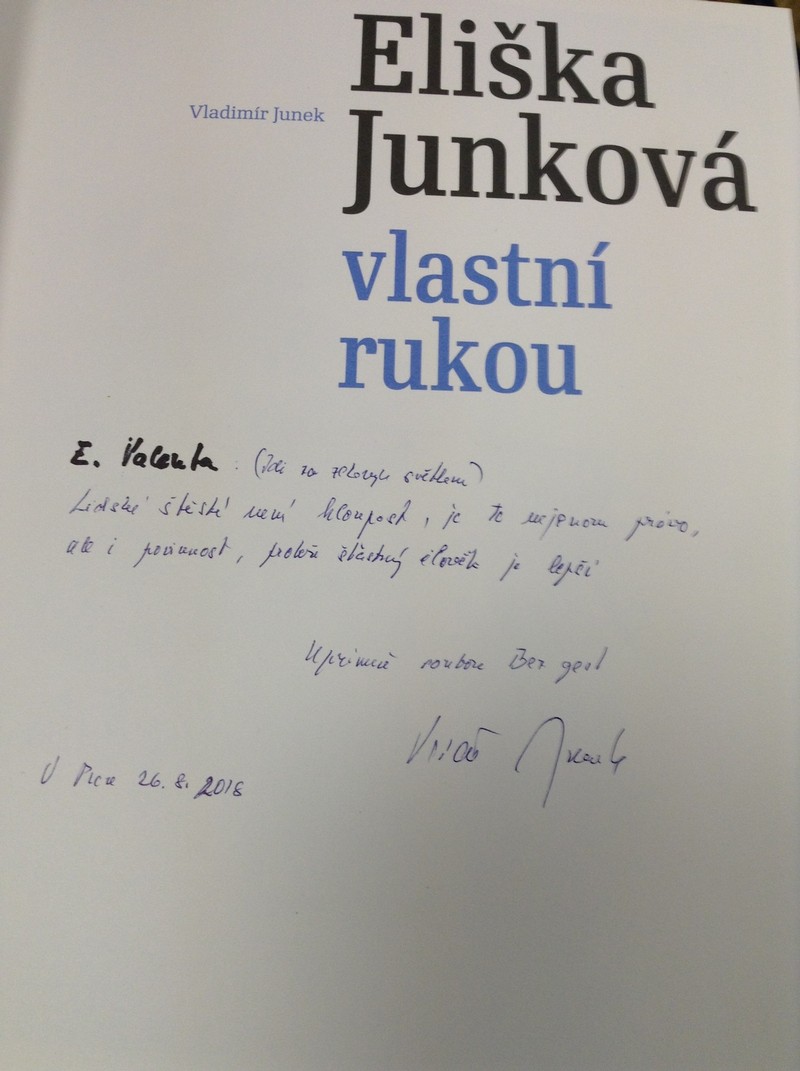 Eliška
Vladimír Junek
Junková
vlastní
rukou
E. Valenta : (Jdi za zeleným světlem)
Lidské štěstí není hloupost, je to nejenom právo,
ale i povinnost, protože šťastný člověk je lepší
Upřímně Bez gest
Junek
V 26. 8. 2016